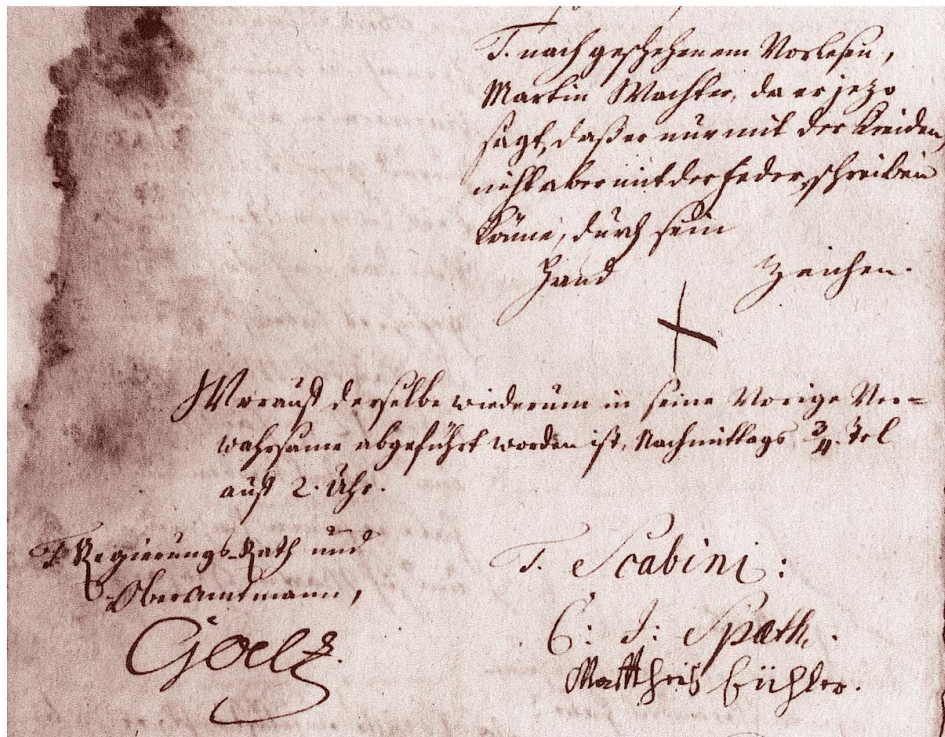 T. nach geschehenem Vorlesen,
Martin Wachter, da er jezo
sagt, daß er nur mit der Kreiden,
nicht aber mit der Feder, schreiben
könne, durch sein
Hand Zeichen.
Worauf derselbe wiederum in seine Vorige Ver=
wahrsame abgeführt worden ist, Nachmittags 3/4.tel
auf 2. Uhr.
T. Regierungs-Rath und
OberAmtmann,
Goelz.
T. Scabini:
C: J: Späth.
Mattheis Eichler.